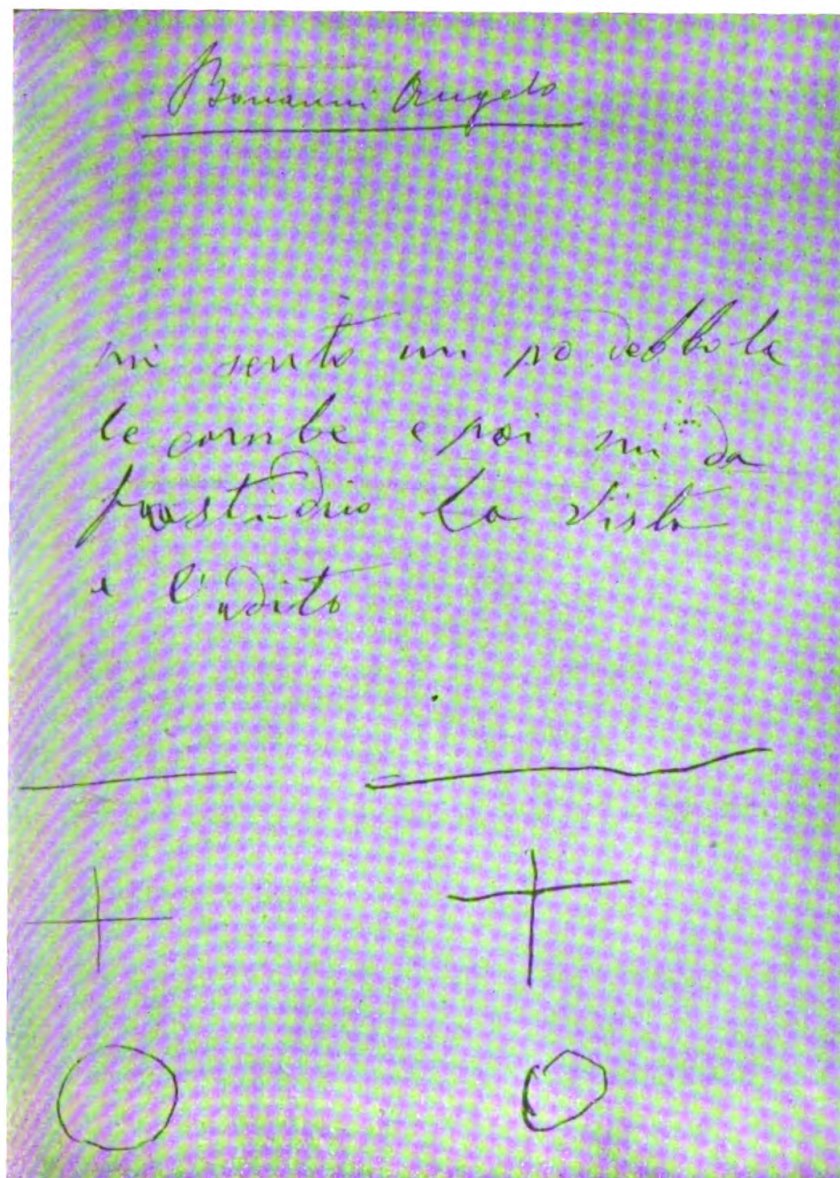 Bonanni Angelo
mi sento un pò debbole
le gambe e poi mi da
fastidio la vista
e l'udito